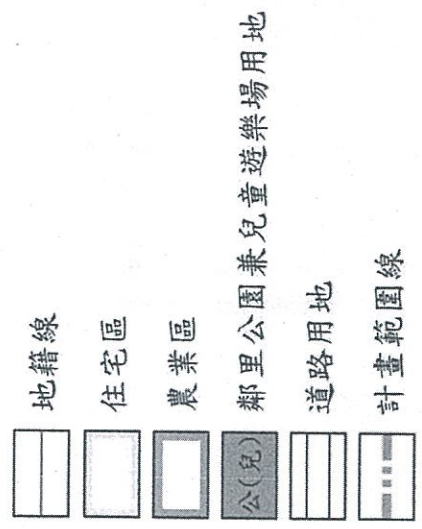 地籍線
住宅區
農業區
公(兒) 鄰里公園兼兒童遊樂場用地
道路用地
計畫範圍線